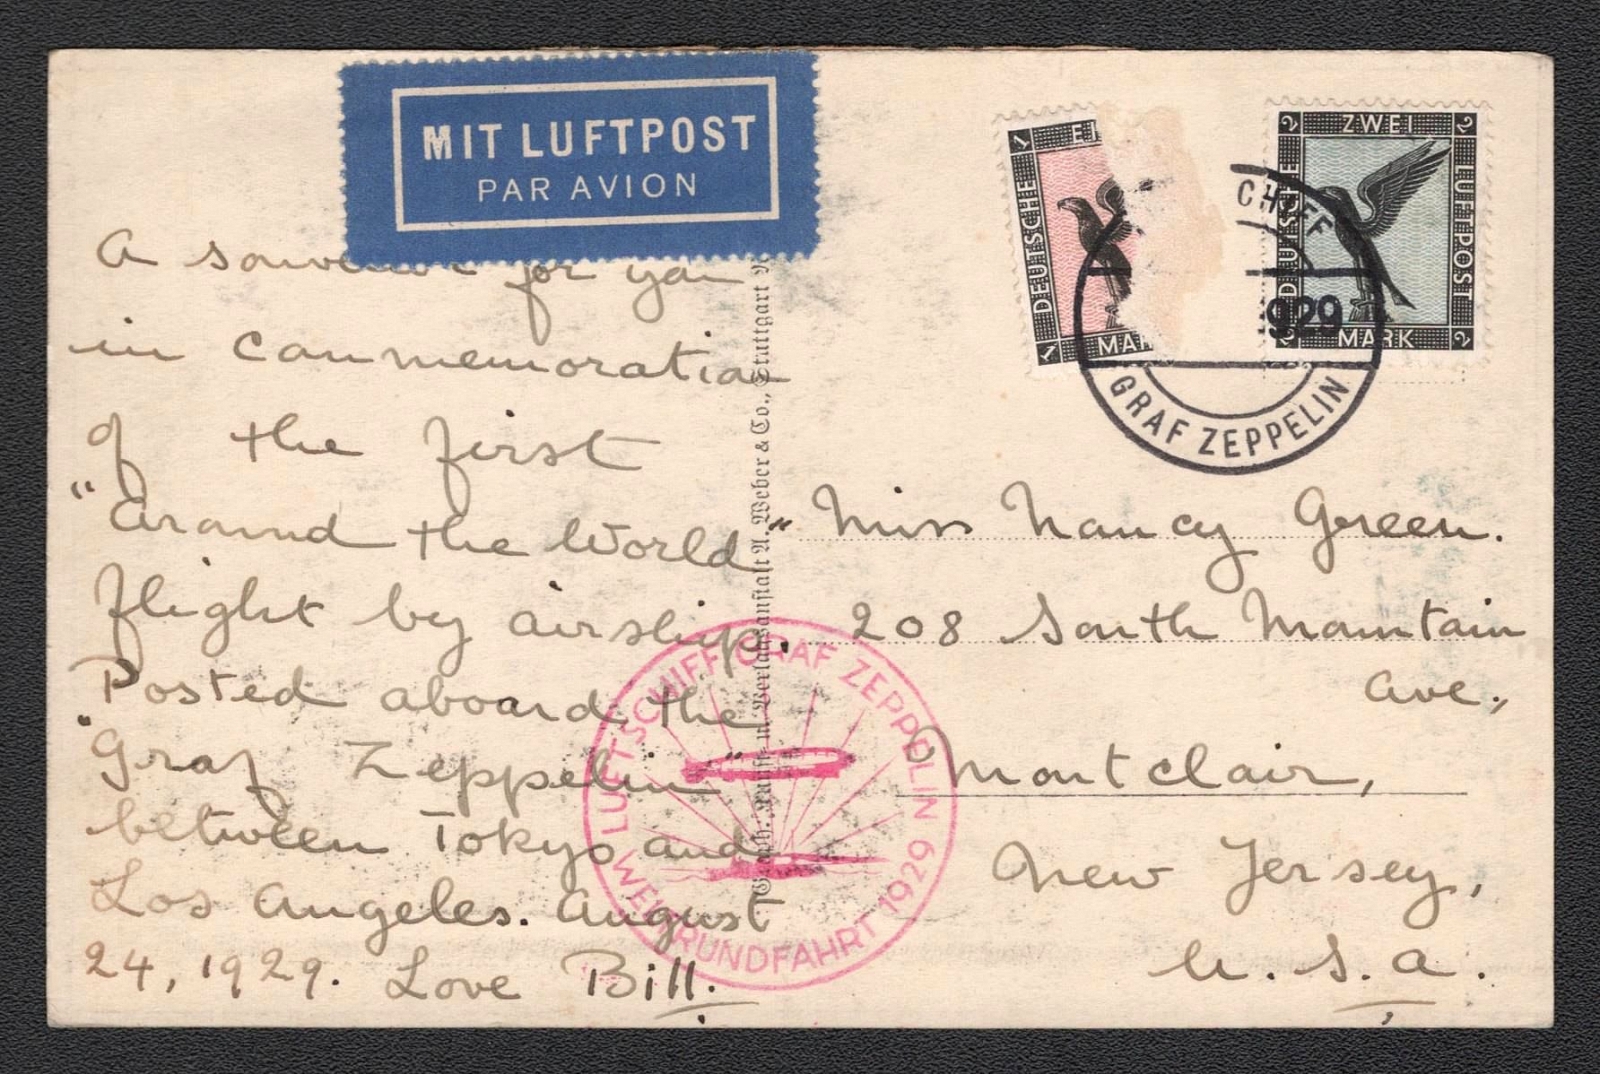 MIT LUFTPOST
PAR AVION
A souvenir for you
in commemoration
of the first
"Around the World"
flight by airship.
Posted aboard the
"Graf Zeppelin"
between Tokyo and
Los Angeles. August
24, 1929. Love Bill.
A. Weber & Co., Stuttgart
1 EI
DEUTSCHE
1 MAR
2 ZWEI 2
DEUTSCHE
LUFTPOST
2 MARK 2
CHIFF
1929
GRAF ZEPPELIN
Miss Nancy Green.
208 South Mountain
Ave.,
Montclair,
New Jersey,
U.S.A.
LUFTSCHIFF GRAF ZEPPELIN
WELTRUNDFAHRT 1929